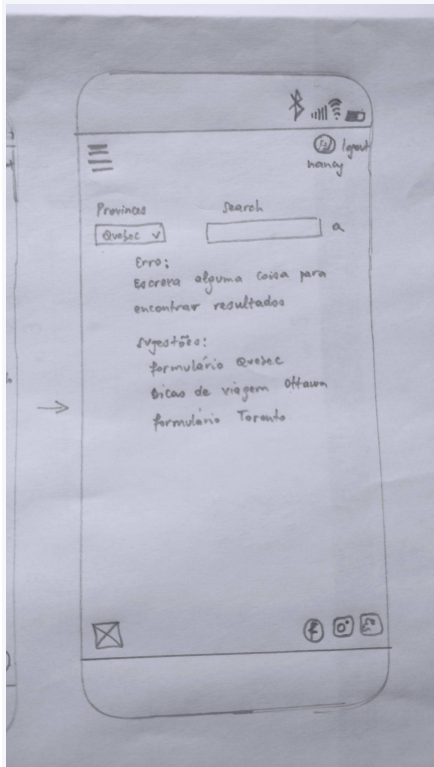 logout
nancy
Provinces
Search
Quebec
Erro:
Escreva alguma coisa para
encontrar resultados
Sugestões:
formulário Quebec
Dicas de viagem Ottawa
formulário Toronto